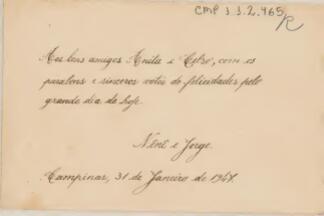 CMP 1.1.2.465
R
Aos bons amigos Anita e Celso, com os
parabens e sinceros votos de felicidades pelo
grande dia de hoje.
Nenê e Jorge.
Campinas, 31 de Janeiro de 1947.